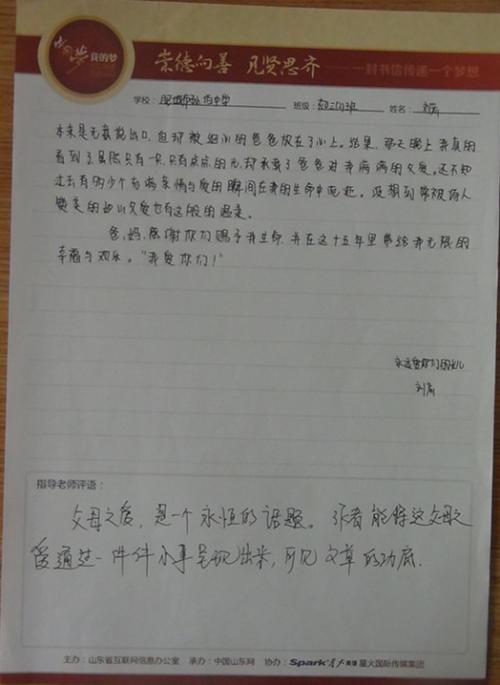 中国梦 我的梦
崇德向善 见贤思齐 ——一封书信传递一个梦想
学校: 肥城市孙伯中学 班级: 初三(1)班 姓名:
本来是无意说出口,但却被细心的爸爸放在了心上。结果,那天晚上我真的
看到了,虽然只有一只,只有点点的光,却承载了爸爸对我满满的父爱。还不知
过去有多少个与满亲情与爱的瞬间在我的生命中。没想到常被诗人
赞美的如山父爱也有这般的温柔。
爸,妈,感谢你们赐予我生命,并在这十五年里带给我无限的
幸福与欢乐。“我爱你们!”
永远爱你们的女儿
指导老师评语:
父母之爱,是一个永恒的话题。作者能将这父母之
爱通过一件件小事呈现出来,可见文章的功底.
主办:山东省互联网信息办公室 承办:中国山东网 协办:Spark 星火英语 星火国际传媒集团